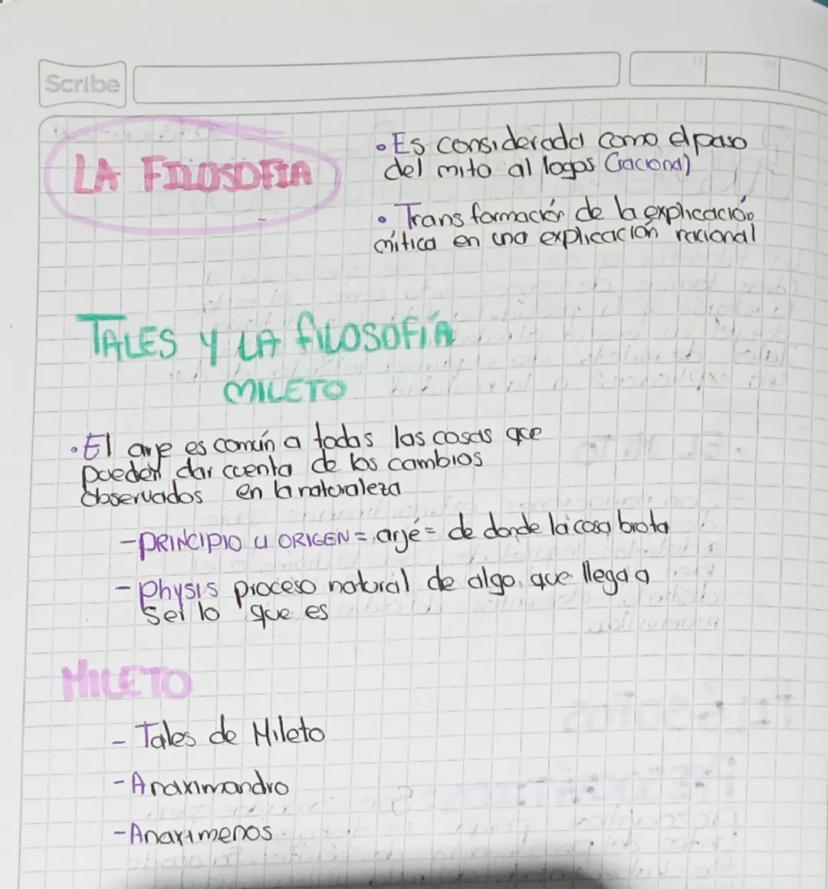 Scribe
LA FILOSOFIA
• Es considerada como el paso
del mito al logos (racional)
• Transformación de la explicación
mítica en una explicación racional
TALES Y LA FILOSOFÍA
MILETO
• El arje es común a todas las cosas que
pueden dar cuenta de los cambios
observados en la naturaleza
- PRINCIPIO U ORIGEN = arjé = de donde la cosa brota
- Physis proceso natural de algo, que llega a
ser lo que es
MILETO
- Tales de Mileto
- Anaximandro
- Anaximenos